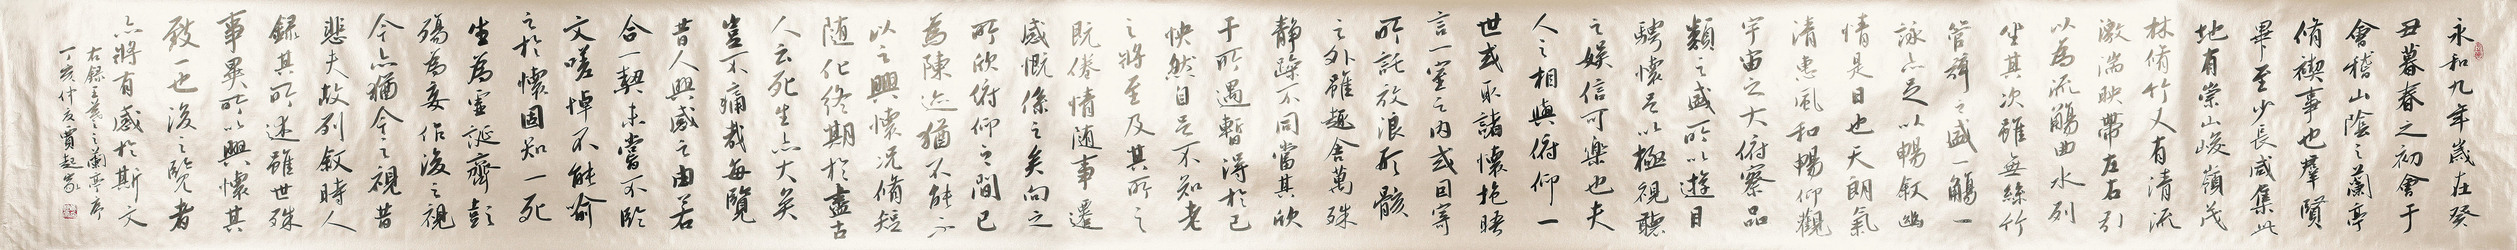 永和九年歲在癸
丑暮春之初會于
會稽山陰之蘭亭
脩禊事也羣賢
畢至少長咸集此
地有崇山峻嶺茂
林脩竹又有清流
激湍映帶左右引
以為流觴曲水列
坐其次雖無絲竹
管絃之盛一觴一
詠亦足以暢敘幽
情是日也天朗氣
清惠風和暢仰觀
宇宙之大俯察品
類之盛所以遊目
騁懷足以極視聽
之娛信可樂也夫
人之相與俯仰一
世或取諸懷抱晤
言一室之內或因寄
所託放浪形骸
之外雖趣舍萬殊
靜躁不同當其欣
于所遇暫得於己
怏然自足不知老
之將至及其所之
既倦情隨事遷
感慨係之矣向之
所欣俯仰之間已
為陳迹猶不能不
以之興懷況脩短
隨化終期於盡古
人云死生亦大矣
豈不痛哉每覽
昔人興感之由若
合一契未嘗不臨
文嗟悼不能喻
之於懷固知一死
生為虛誕齊彭
殤為妄作後之視
今亦猶今之視昔
悲夫故列敘時人
錄其所述雖世殊
事異所以興懷其
致一也後之覽者
亦將有感於斯文
右錄王羲之蘭亭序
丁亥 賈起家